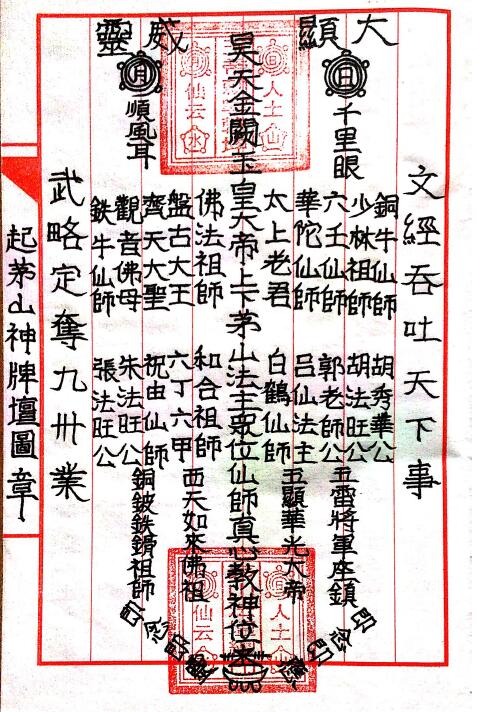 大顯威靈
日
千里眼
月
順風耳
文經吞吐天下事
銅牛仙師 胡秀華公
少林祖師 胡法旺公
五雷將軍座鎮
六壬仙師 郭老師公
華陀仙師 呂仙法主
五顯華光大帝
太上老君 白鶴仙師
昊天金闕玉皇大帝上下茅山法主眾位仙師真心教神位
佛法祖師 和合祖師
西天如來佛祖
盤古大王 六丁六甲
齊天大聖 祝由仙師
觀音佛母 朱法旺公
鉄牛仙師 張法旺公
武略定奪九卅業
起茅山神牌壇圖章
人土山
仙云水
人土
仙云